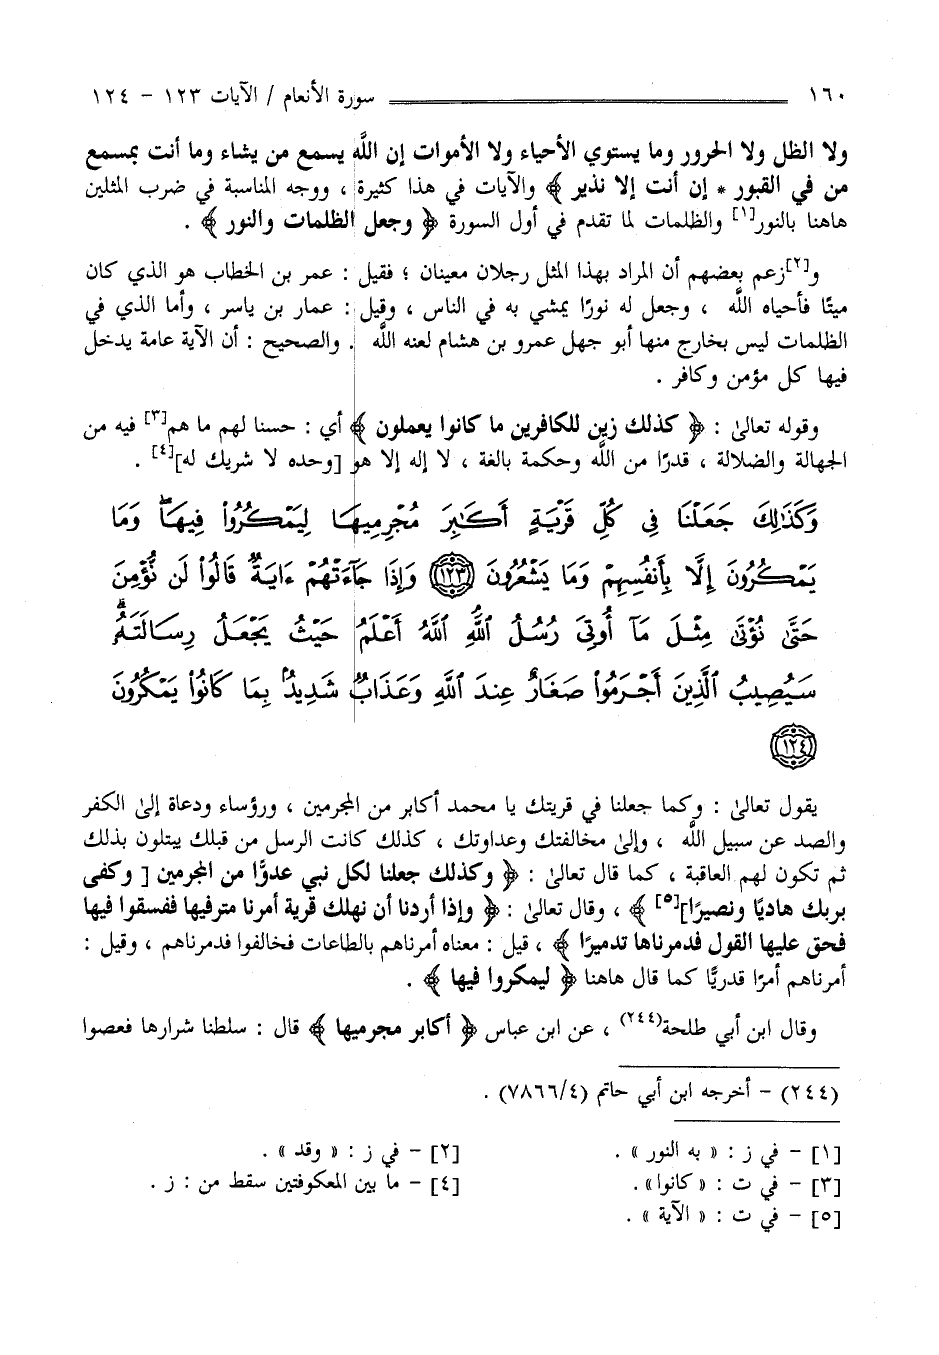 ١٦٠ سورة الأنعام / الآيات ١٢٣ - ١٢٤
ولا الظل ولا الحرور وما يستوي الأحياء ولا الأموات إن اللَّه يسمع من يشاء وما أنت بمسمع
من في القبور * إن أنت إلا نذير ﴾ والآيات في هذا كثيرة ، ووجه المناسبة في ضرب المثلين
هاهنا بالنور[١] والظلمات لما تقدم في أول السورة ﴿ وجعل الظلمات والنور ﴾ .
و[٢]زعم بعضهم أن المراد بهذا المثل رجلان معينان ؛ فقيل : عمر بن الخطاب هو الذي كان
ميتًا فأحياه اللَّه ، وجعل له نورًا يمشي به في الناس ، وقيل : عمار بن ياسر ، وأما الذي في
الظلمات ليس بخارج منها أبو جهل عمرو بن هشام لعنه اللَّه . والصحيح : أن الآية عامة يدخل
فيها كل مؤمن وكافر .
وقوله تعالىٰ : ﴿ كذلك زين للكافرين ما كانوا يعملون ﴾ أي : حسنا لهم ما هم[٣] فيه من
الجهالة والضلالة ، قدرًا من اللَّه وحكمة بالغة ، لا إله إلا هو [وحده لا شريك له][٤] .
وَكَذَٰلِكَ جَعَلْنَا فِي كُلِّ قَرْيَةٍ أَكَٰبِرَ مُجْرِمِيهَا لِيَمْكُرُوا۟ فِيهَا ۖ وَمَا
يَمْكُرُونَ إِلَّا بِأَنفُسِهِمْ وَمَا يَشْعُرُونَ ﴿١٢٣﴾ وَإِذَا جَآءَتْهُمْ ءَايَةٌ قَالُوا۟ لَن نُّؤْمِنَ
حَتَّىٰ نُؤْتَىٰ مِثْلَ مَآ أُوتِيَ رُسُلُ ٱللَّهِ ٱللَّهُ أَعْلَمُ حَيْثُ يَجْعَلُ رِسَالَتَهُۥ
سَيُصِيبُ ٱلَّذِينَ أَجْرَمُوا۟ صَغَارٌ عِندَ ٱللَّهِ وَعَذَابٌ شَدِيدٌۢ بِمَا كَانُوا۟ يَمْكُرُونَ
﴿١٢٤﴾
يقول تعالىٰ : وكما جعلنا في قريتك يا محمد أكابر من المجرمين ، ورؤساء ودعاة إلىٰ الكفر
والصد عن سبيل اللَّه ، وإلىٰ مخالفتك وعداوتك ، كذلك كانت الرسل من قبلك يبتلون بذلك
ثم تكون لهم العاقبة ، كما قال تعالىٰ : ﴿ وكذلك جعلنا لكل نبي عدوًّا من المجرمين [ وكفى
بربك هاديًا ونصيرًا][٥] ﴾ ، وقال تعالىٰ : ﴿ وإذا أردنا أن نهلك قرية أمرنا مترفيها ففسقوا فيها
فحق عليها القول فدمرناها تدميرًا ﴾ ، قيل : معناه أمرناهم بالطاعات فخالفوا فدمرناهم ، وقيل :
أمرناهم أمرًا قدريًّا كما قال هاهنا ﴿ ليمكروا فيها ﴾ .
وقال ابن أبي طلحة(٢٤٤) ، عن ابن عباس ﴿ أكابر مجرميها ﴾ قال : سلطنا شرارها فعصوا
(٢٤٤) - أخرجه ابن أبي حاتم (٧٨٦٦/٤) .
[١] - في ز : « به النور » . [٢] - في ز : « وقد » .
[٣] - في ت : « كانوا» . [٤] - ما بين المعكوفتين سقط من : ز .
[٥] - في ت : « الآية » .